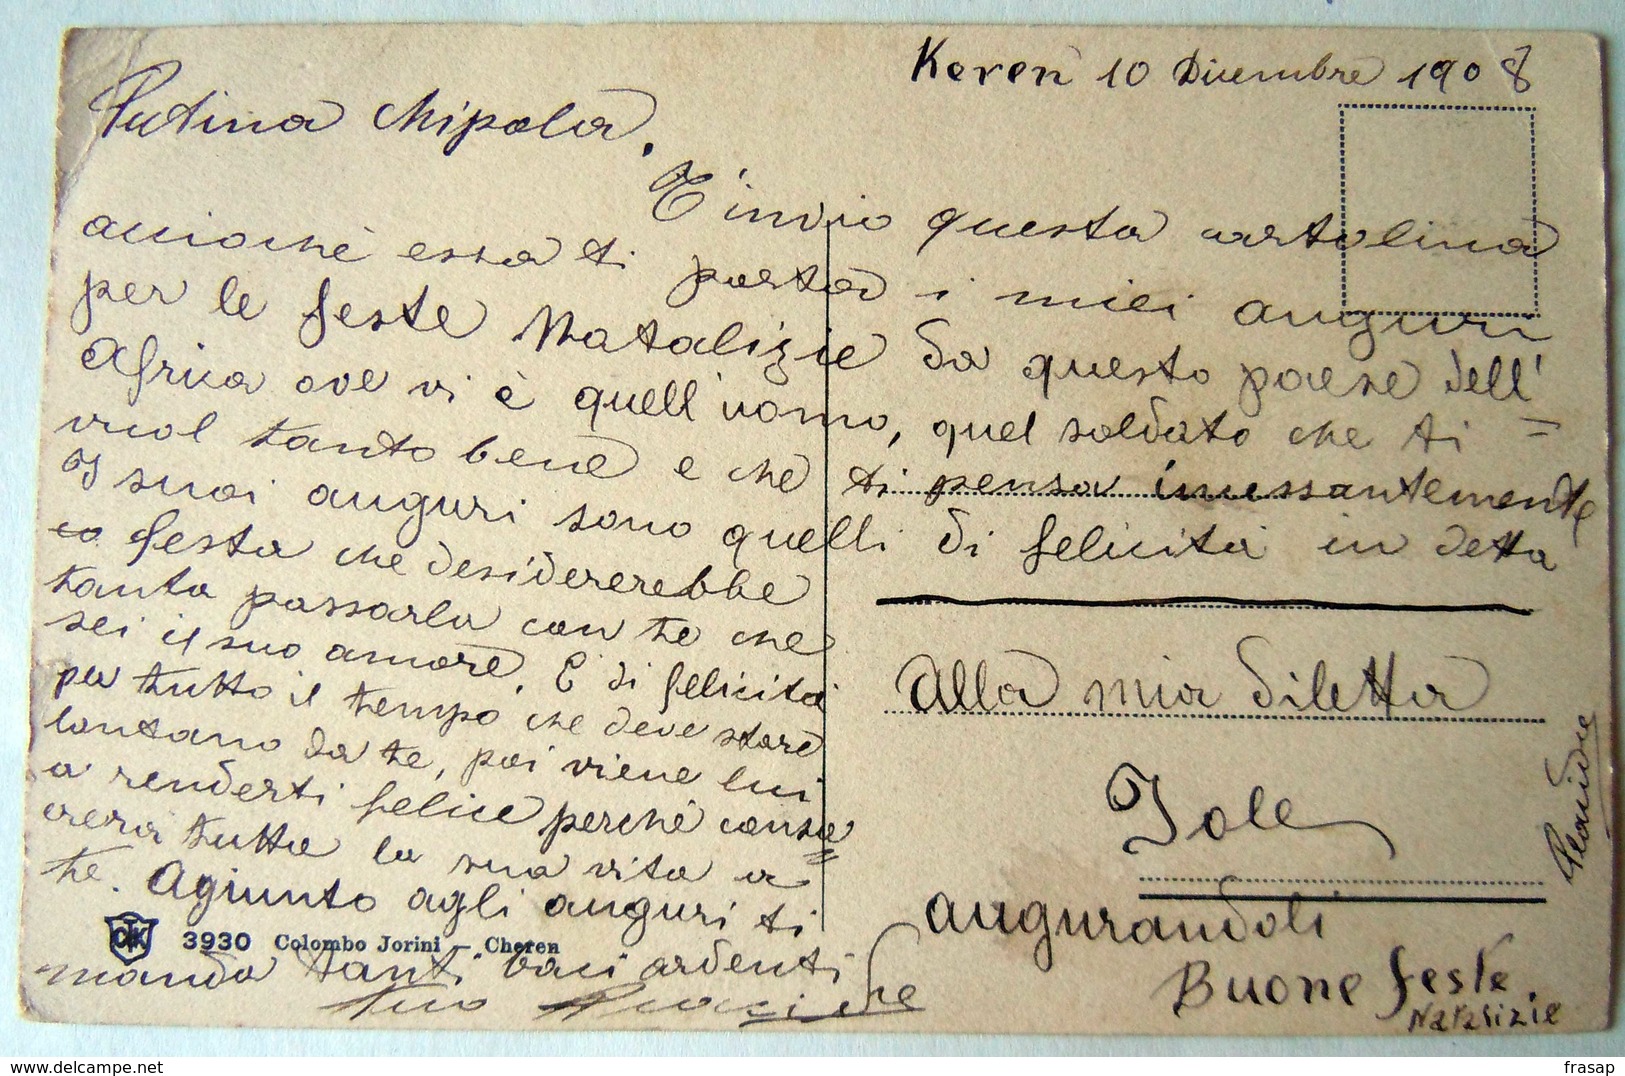 Keren 10 Dicembre 1908
Putina Mipola,
T'invio questa cartolina
acciochè essa ti porta i miei auguri
per le feste Natalizie da questo paese dell'
Africa ove vi è quell'uomo, quel soldato che ti =
vuol tanto bene e che ti pensa incessantemente
I suoi auguri sono quelli di felicità in detta
festa che desidererebbe
tanto passarla con te che
sei il suo amore. E di felicità
per tutto il tempo che deve stare
lontano da te, poi viene lui
a renderti felice perchè consa=
crera tutta la sua vita a
te. Agiunto agli auguri ti
mando tanti baci ardenti
tuo
Alla mia diletta
Jole
augurandoli
Buone feste
Natalizie
CTK 3930 Colombo Jorini — Cheren
frasap